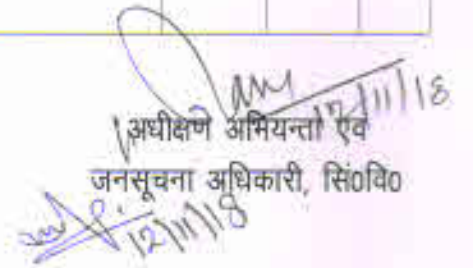 12/11/18
अधीक्षण अभियन्ता एवं
जनसूचना अधिकारी, सिं0वि0
12/11/18